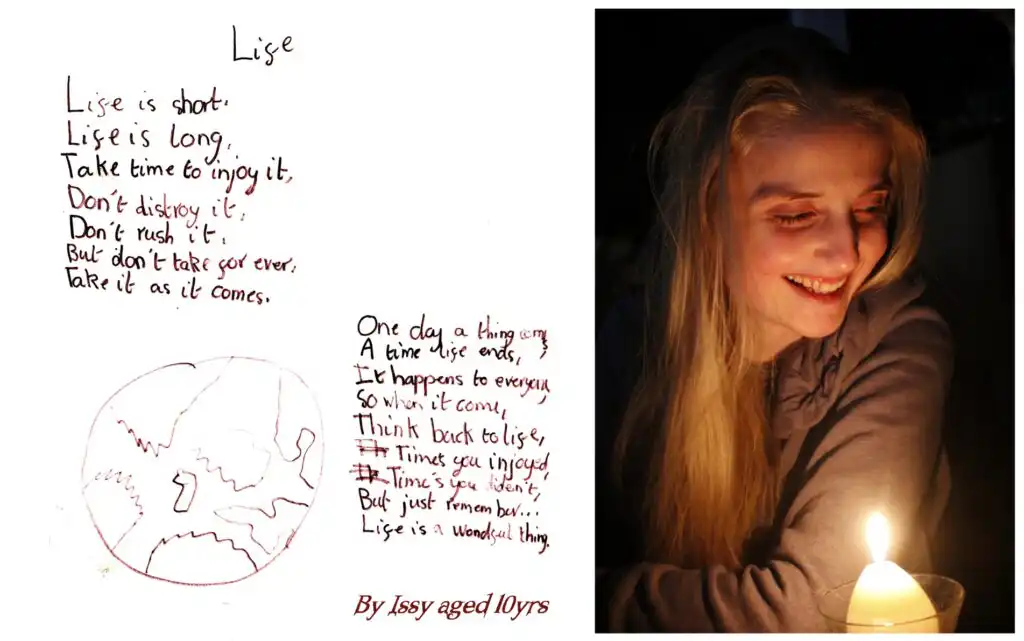 Life
Life is short.
Life is long,
Take time to injoy it,
Don't distroy it,
Don't rush it,
But don't take for ever,
Take it as it comes.
One day a thing
A time life ends,
It happens to everyone,
So when it come,
Think back to life,
Times you injoyed,
Time's you diden't,
But just remember...
Life is a wondful thing.
By Issy aged 10yrs